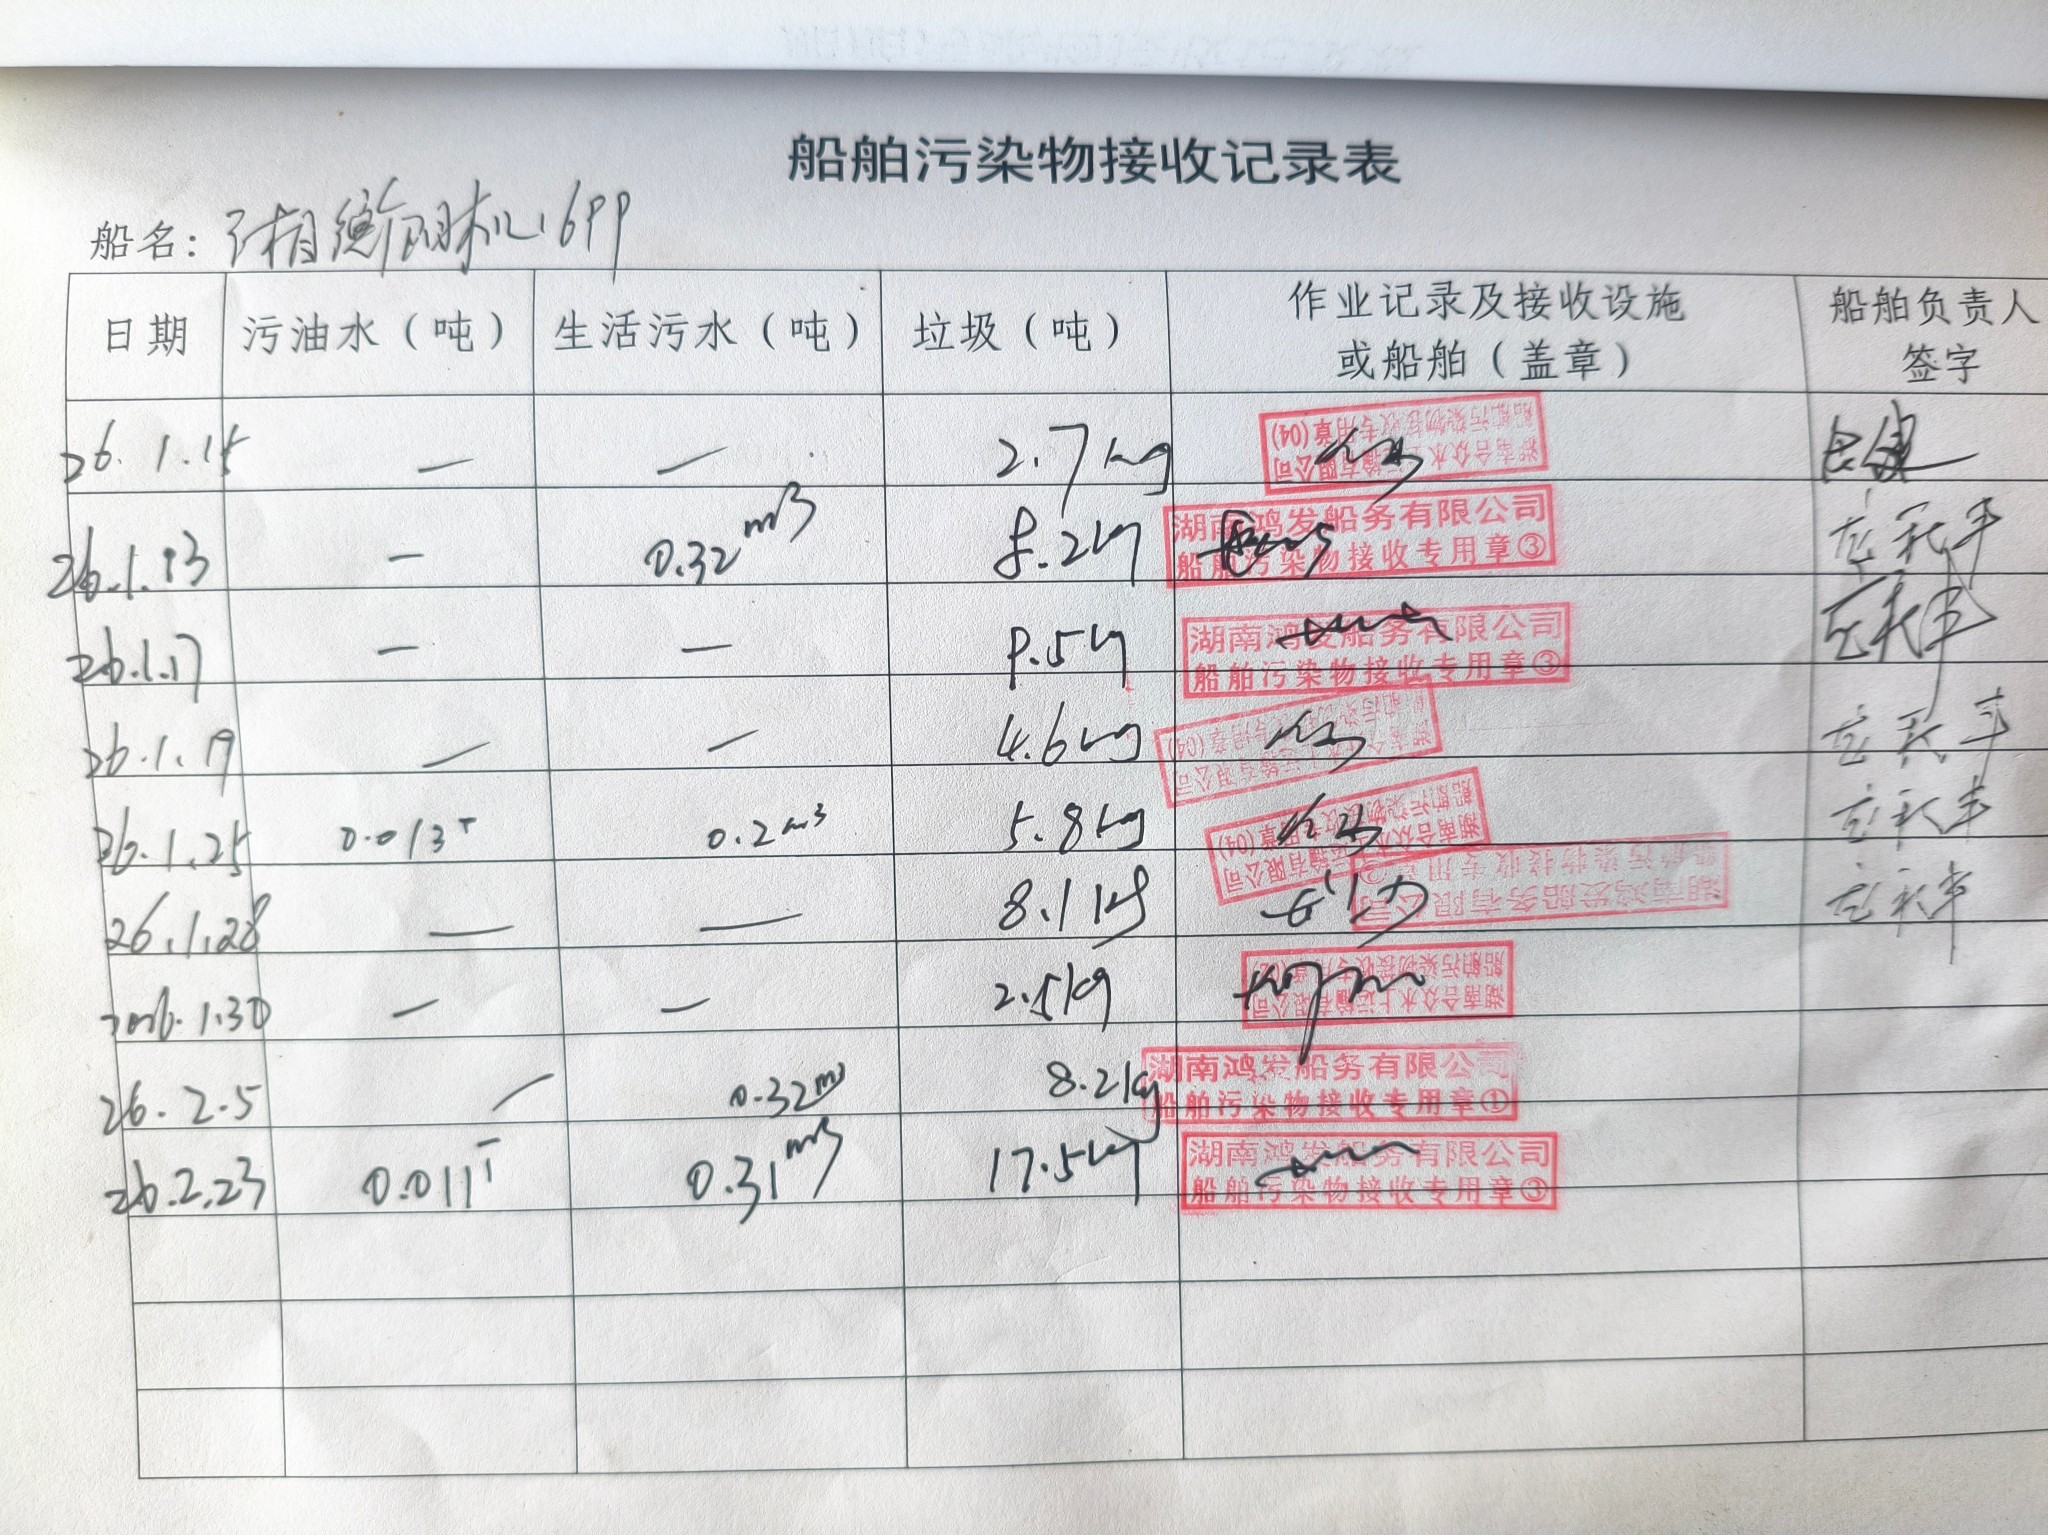 船舶污染物接收记录表
船名：湘衡阳机1699
日期 污油水（吨） 生活污水（吨） 垃圾（吨） 作业记录及接收设施或船舶（盖章） 船舶负责人签字
26.1.15 — — 2.7kg 湖南合众水上运输有限公司 船舶污染物接收专用章(04)
26.1.13 — 0.32m3 8.2kg 湖南鸿发船务有限公司 船舶污染物接收专用章③
26.1.17 — — 9.5kg 湖南鸿发船务有限公司 船舶污染物接收专用章③
26.1.19 — — 4.6kg 湖南合众水上运输有限公司 (04)
26.1.25 0.013T 0.2m3 5.8kg 湖南合众水上运输有限公司 船舶污染物接收专用章(04)
26.1.28 — — 8.1kg 湖南鸿发船务有限公司 船舶污染物接收专用章
2026.1.30 — — 2.5kg 湖南合众水上运输有限公司 船舶污染物接收专用章
26.2.5 — 0.32m3 8.2kg 湖南鸿发船务有限公司 船舶污染物接收专用章①
26.2.23 0.011T 0.31m3 17.5kg 湖南鸿发船务有限公司 船舶污染物接收专用章③